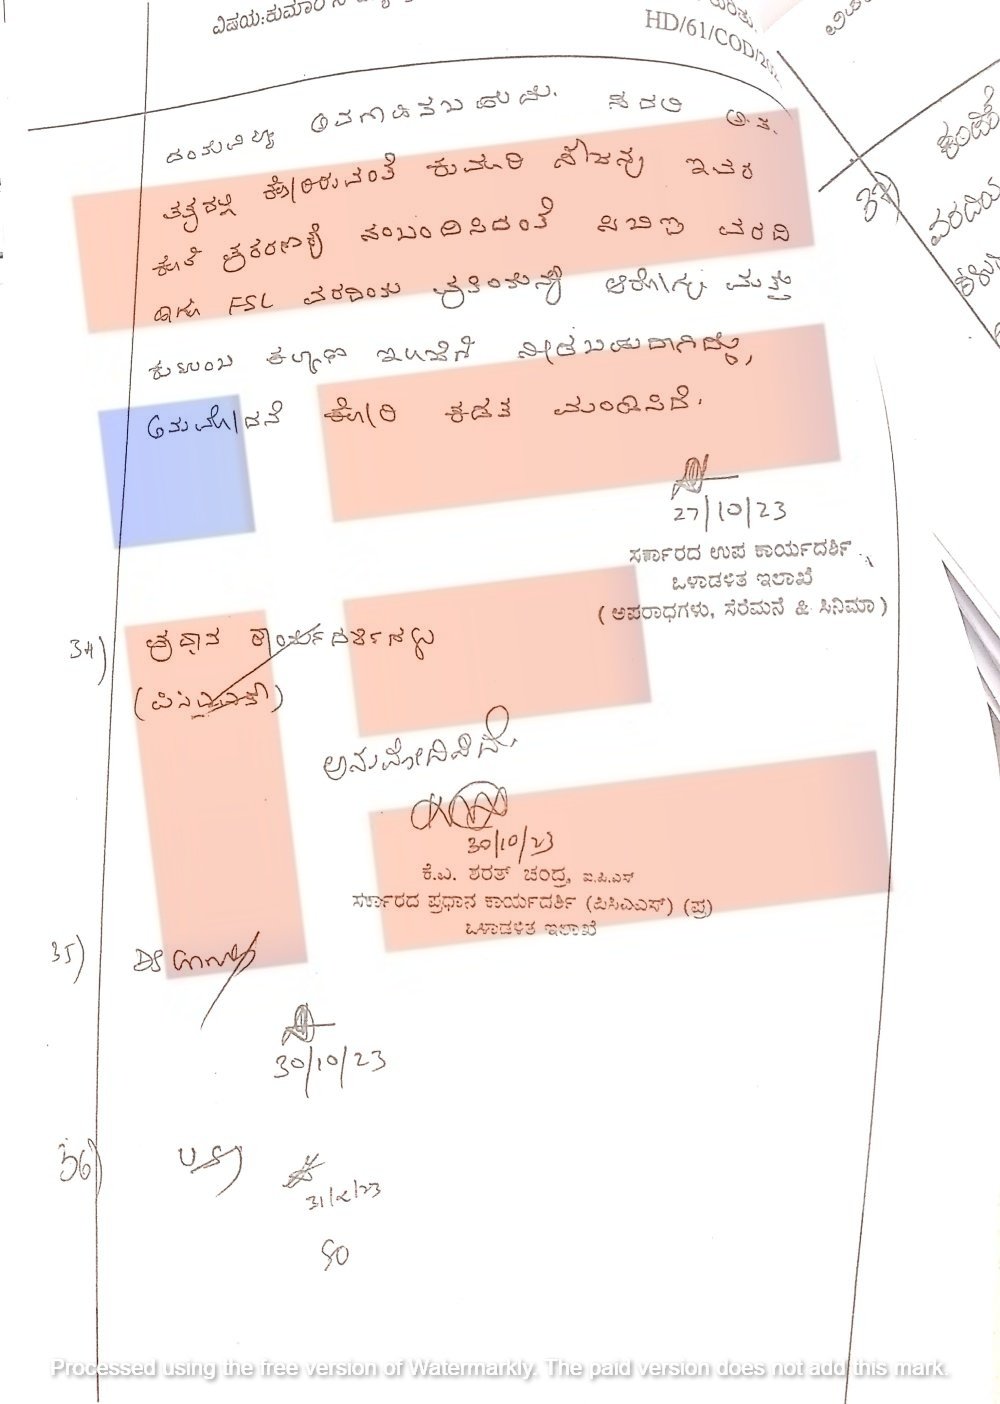 ವಿಷಯ:ಕುಮಾರಿ
HD/61/COD/202
ದಯವಿಟ್ಟು ಅವಗಾಹಿಸಬಹುದು. ಸದರಿ ಅ.ಸ.
ಪತ್ರದಲ್ಲಿ ಕೋರಿರುವಂತೆ ಕುಮಾರಿ ಸೌಜನ್ಯ ಇವರ
ಕೊಲೆ ಪ್ರಕರಣಕ್ಕೆ ಸಂಬಂಧಿಸಿದಂತೆ ಸಿಬಿಐ ವರದಿ
ಹಾಗೂ FSL ವರದಿಯ ಪ್ರತಿಯನ್ನು ಆರೋಗ್ಯ ಮತ್ತು
ಕುಟುಂಬ ಕಲ್ಯಾಣ ಇಲಾಖೆಗೆ ನೀಡಬಹುದಾಗಿದ್ದು,
ಅನುಮೋದನೆ ಕೋರಿ ಕಡತ ಮಂಡಿಸಿದೆ.
27/10/23
ಸರ್ಕಾರದ ಉಪ ಕಾರ್ಯದರ್ಶಿ
ಒಳಾಡಳಿತ ಇಲಾಖೆ
(ಅಪರಾಧಗಳು, ಸೆರೆಮನೆ & ಸಿನಿಮಾ)
34) ಪ್ರಧಾನ ಕಾರ್ಯದರ್ಶಿ
(ಪಿಸಿಎಎಸ್)
ಅನುಮೋದಿಸಿದೆ.
30/10/23
ಕೆ.ವಿ. ಶರತ್ ಚಂದ್ರ, ಐ.ಪಿ.ಎಸ್
ಸರ್ಕಾರದ ಪ್ರಧಾನ ಕಾರ್ಯದರ್ಶಿ (ಪಿಸಿಎಎಸ್) (ಪ್ರ)
ಒಳಾಡಳಿತ ಇಲಾಖೆ
35) DS
30/10/23
36)
31/x/23
37)
ವರದಿಯ
Processed using the free version of Watermarkly. The paid version does not add this mark.